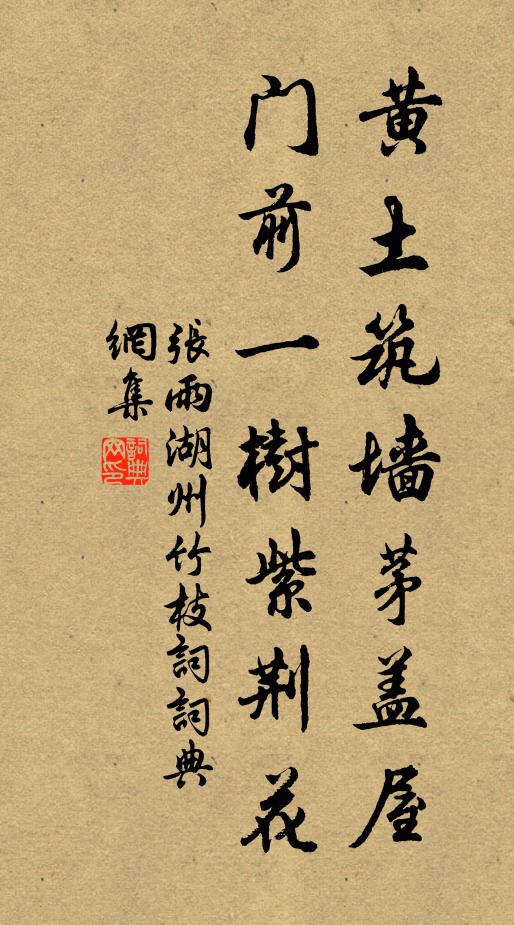 黄土筑墙茅盖屋
门前一樹紫荆花
張雨湖州竹枝詞詞典
網集
詞典
网印